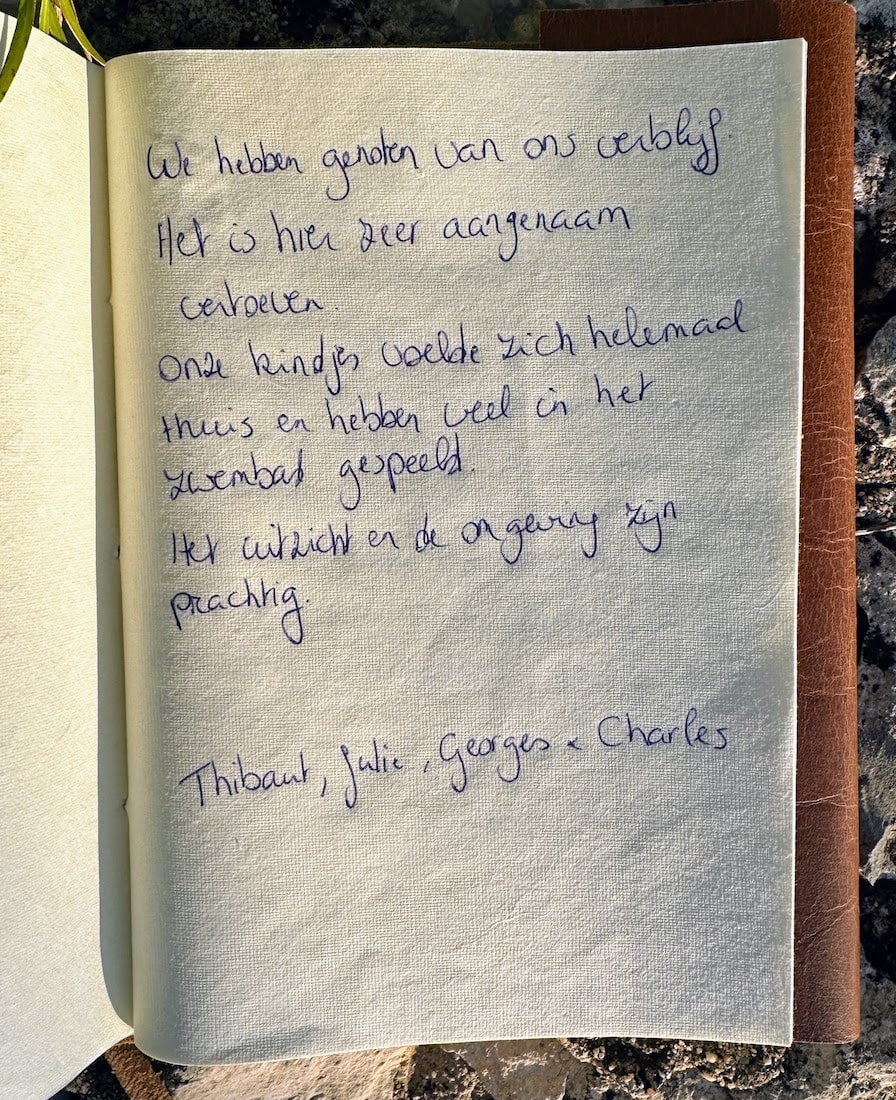 We hebben genoten van ons verblijf.
Het is hier zeer aangenaam
vertoeven.
Onze kindjes voelde zich helemaal
thuis en hebben veel in het
zwembad gespeeld.
Het uitzicht en de omgeving zijn
prachtig.
Thibaut, Julie, Georges & Charles